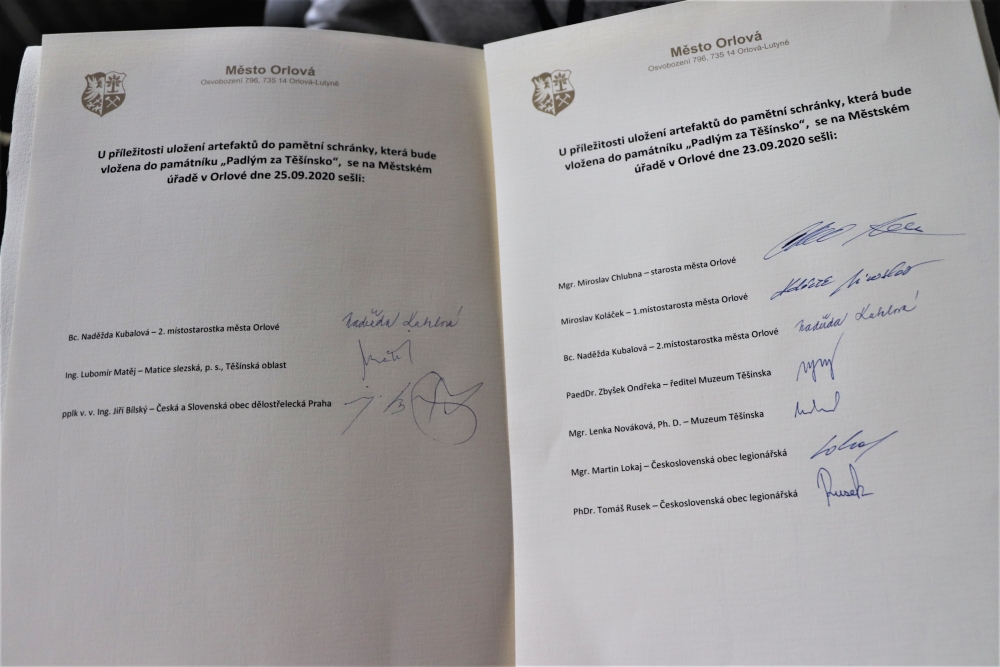 Město Orlová
Osvobození 796, 735 14 Orlová-Lutyně
U příležitosti uložení artefaktů do pamětní schránky, která bude
vložena do památníku „Padlým za Těšínsko“, se na Městském
úřadě v Orlové dne 25.09.2020 sešli:
Bc. Naděžda Kubalová – 2. místostarostka města Orlové
Naděžda Kubalová
Ing. Lubomír Matěj – Matice slezská, p. s., Těšínská oblast
pplk v. v. Ing. Jiří Bílský – Česká a Slovenská obec dělostřelecká Praha
Město Orlová
Osvobození 796, 735 14 Orlová-Lutyně
U příležitosti uložení artefaktů do pamětní schránky, která bude
vložena do památníku „Padlým za Těšínsko“, se na Městském
úřadě v Orlové dne 23.09.2020 sešli:
Mgr. Miroslav Chlubna – starosta města Orlové
Miroslav Koláček – 1.místostarosta města Orlové
Bc. Naděžda Kubalová – 2.místostarostka města Orlové
Naděžda Kubalová
PaedDr. Zbyšek Ondřeka – ředitel Muzeum Těšínska
Mgr. Lenka Nováková, Ph. D. – Muzeum Těšínska
Mgr. Martin Lokaj – Československá obec legionářská
Lokaj
PhDr. Tomáš Rusek – Československá obec legionářská
Rusek